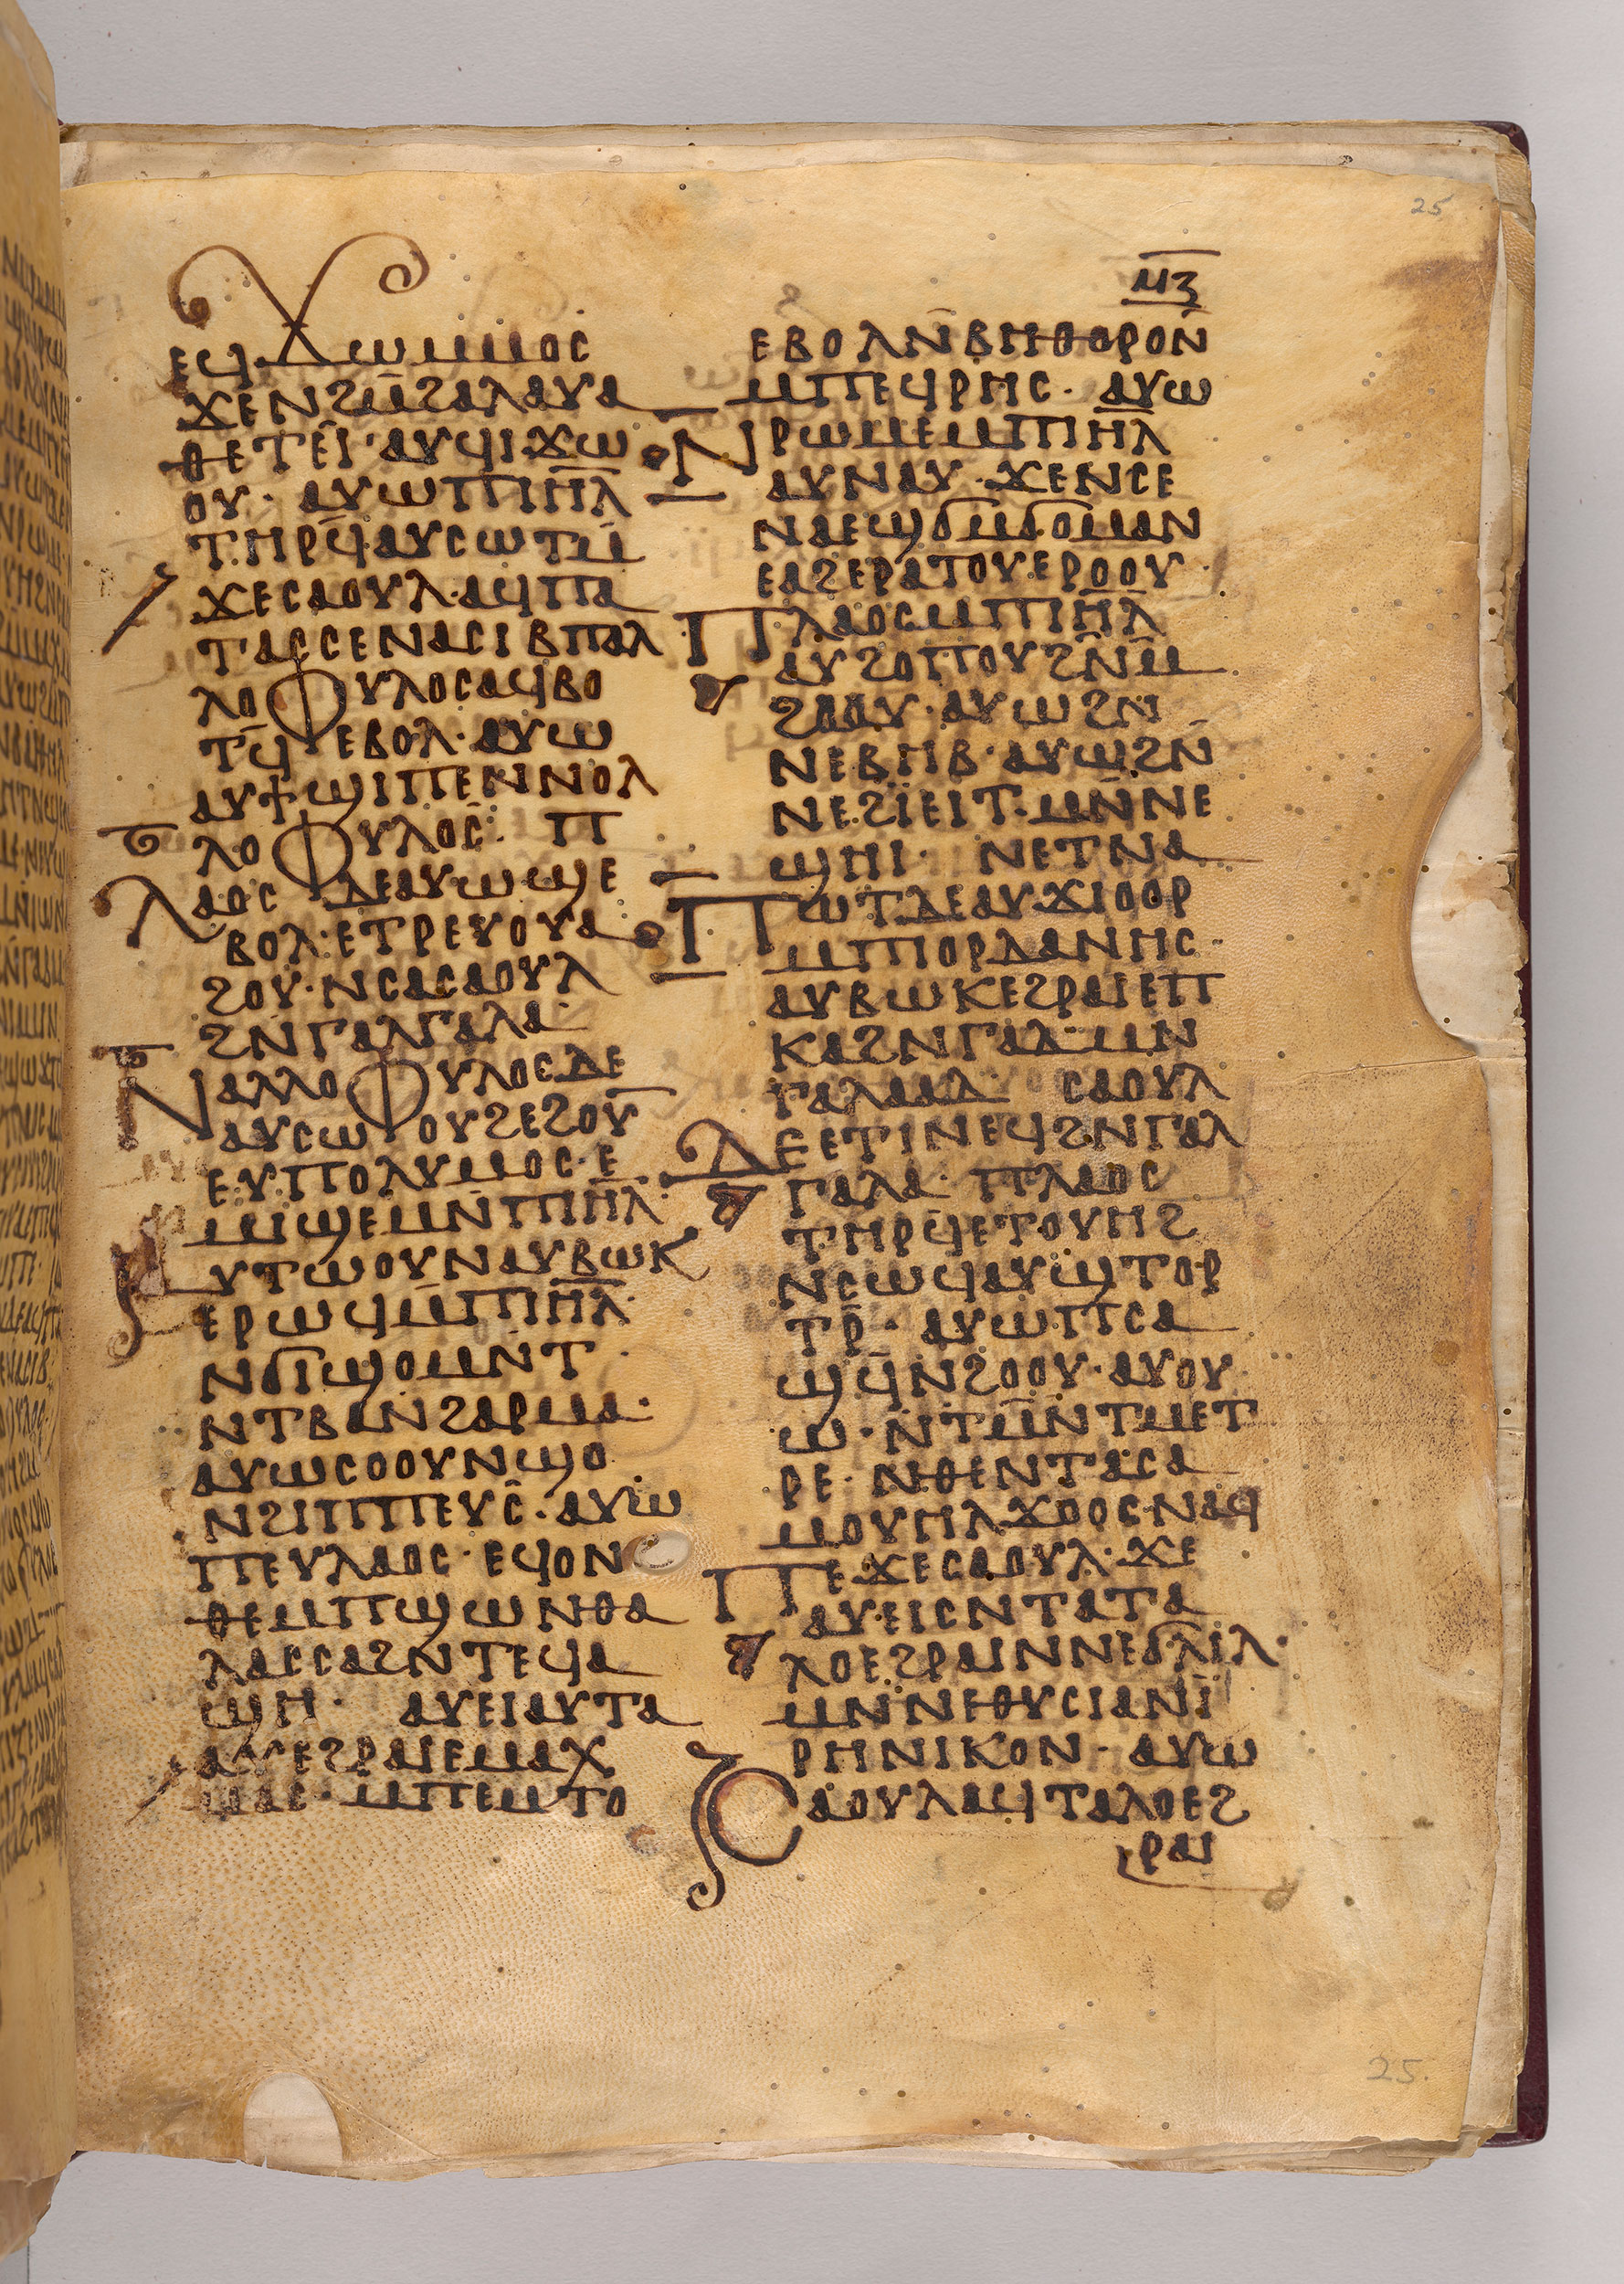 25
ⲙⲍ
ⲉϥϫⲱⲙⲙⲟⲥ
ϫⲉⲛϩⲙ̄ϩⲁⲗⲁⲩⲁ
ⲑⲉⲧⲉⲓ̂·ⲁⲩϥⲓ·ϫⲱ
ⲟⲩ· ⲁⲩⲱⲡⲓⲏ̅ⲗ̅
ⲧⲏⲣϥ̄·ⲁⲩⲥⲱⲧⲙ̄
ϫⲉⲥⲁⲟⲩⲗ·ⲁϥⲡⲁ
ⲧⲁⲥⲥⲉⲛⲁⲥⲓⲃⲡⲁⲗ
ⲗⲟⲫⲩⲗⲟⲥⲁϥⲃⲟ
ⲧϥ̄·ⲉⲃⲟⲗ·ⲁⲩⲱ
ⲁⲩϯϣⲓⲡⲉⲛⲛⲟⲗ
ⲗⲟⲫⲩⲗⲟⲥ: ⲡ
ⲗⲁⲟⲥ ⲇⲉⲁⲩⲱϣⲉ
ⲃⲟⲗ·ⲉⲧⲣⲉⲩⲟⲩⲁ
ϩⲟⲩ·ⲛⲥⲁⲥⲁⲟⲩⲗ
ϩⲛⲅⲁⲗⲅⲁⲗⲁ·
ⲛⲁⲗⲗⲟⲫⲩⲗⲟⲥⲇⲉ
ⲁⲩⲥⲱⲟⲩϩⲉϩⲟⲩ̅
ⲉⲩⲡⲟⲗⲩⲙⲟⲥ·ⲉ
ⲙⲓϣⲉⲙⲛ̄ⲡⲓⲏ̅ⲗ̅·
ⲁⲩⲧⲱⲟⲩⲛⲁⲩⲃⲱⲕ
ⲉⲣⲱϥⲙ̄ⲡⲓⲏ̅ⲗ̅·
ⲛϭⲓϣⲟⲙⲛ̄ⲧ·
ⲛⲧⲃⲁⲛϩⲁⲣⲙⲁ·
ⲁⲩⲱⲥⲟⲟⲩⲛϣⲟ
ⲛϩⲓⲡⲡⲉⲩⲥ̂·ⲁⲩⲱ
ⲡⲉⲩⲗⲁⲟⲥ·ⲉϥⲟⲛ
ⲑⲉⲙⲡϣⲱⲛⲑⲁ
ⲗⲁⲥⲥⲁϩⲛⲧⲉϥⲁ
ϣⲏ· ⲁⲩⲉⲓⲁⲩⲧⲁ
ⲁⲩⲉϩⲣⲁⲓⲉⲙⲁⲭ
ⲙⲁⲥ·ⲙⲡⲉⲙⲧⲟ
ⲉⲃⲟⲗⲛ̄ⲃⲏⲑⲟⲣⲟⲛ
ⲙⲡⲉϥⲣⲏⲥ·ⲁⲩⲱ
ⲛⲣⲱⲙⲉⲙⲡⲓⲏ̅ⲗ̅
ⲁⲩⲛⲁⲩ·ϫⲉⲛⲥⲉ
ⲛⲁⲉϣϭⲙϭⲟⲙⲁⲛ
ⲉⲁϩⲉⲣⲁⲧⲟⲩⲉⲣⲟⲟⲩ·
ⲡⲗⲁⲟⲥⲙⲡⲓⲏ̅ⲗ̅
ⲁⲩϩⲟⲡⲟⲩϩⲛ̄ⲙ̄
ϩⲁⲁⲩ·ⲁⲩⲱϩⲛ
ⲛⲉⲃⲏⲃ·ⲁⲩⲱϩⲛ̄
ⲛⲉϩⲓⲉⲓⲧ·ⲙⲛ̄ⲛⲉ
ϣⲏⲓ· ⲛⲉⲧⲛⲁ
ⲡⲱⲧⲇⲉⲁⲩϫⲓⲟⲟⲣ
ⲙⲡⲓⲟⲣⲇⲁⲛⲏⲥ·
ⲁⲩⲃⲱⲕⲉϩⲣⲁⲓⲉⲡ
ⲕⲁϩⲛⲅⲁⲇⲙⲛ
ⲅⲁⲗⲁⲁⲇ· ⲥⲁⲟⲩⲗ
ⲇⲉⲉⲧⲓⲛⲉϥϩⲛⲅⲁⲗ
ⲅⲁⲗⲁ·ⲡⲗⲁⲟⲥ
ⲧⲏⲣϥⲉⲧⲟⲩⲏϩ
ⲛⲥⲱϥⲁⲩϣⲧⲟⲣ
ⲧⲣ̄·ⲁⲩⲱⲡⲥⲁ
ϣϥ̄ⲛϩⲟⲟⲩ·ⲁⲩⲟⲩ
ⲱ·ⲛⲧⲙ̄ⲛⲧⲙⲉⲧ
ⲣⲉ·ⲛⲑⲉⲛⲧⲁⲥⲁ
ⲙⲟⲩⲏⲗϫⲟⲟⲥⲛⲁϥ
ⲡⲉϫⲉⲥⲁⲟⲩⲗ·ϫⲉ
ⲁⲩ·ⲉⲓⲥⲛⲧⲁⲧⲁ
ⲗⲟⲉϩⲣⲁⲓⲛⲛⲉϭⲗⲓⲗ·
ⲙⲛⲛⲉⲑⲩⲥⲓⲁⲛⲓ̈
ⲣⲏⲛⲓⲕⲟⲛ·ⲁⲩⲱ
ⲥⲁⲟⲩⲗⲁϥⲧⲁⲗⲟⲉϩ
ⲣⲁⲓ
25.